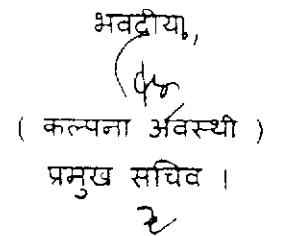 भवदीया,
( कल्पना अवस्थी )
प्रमुख सचिव ।